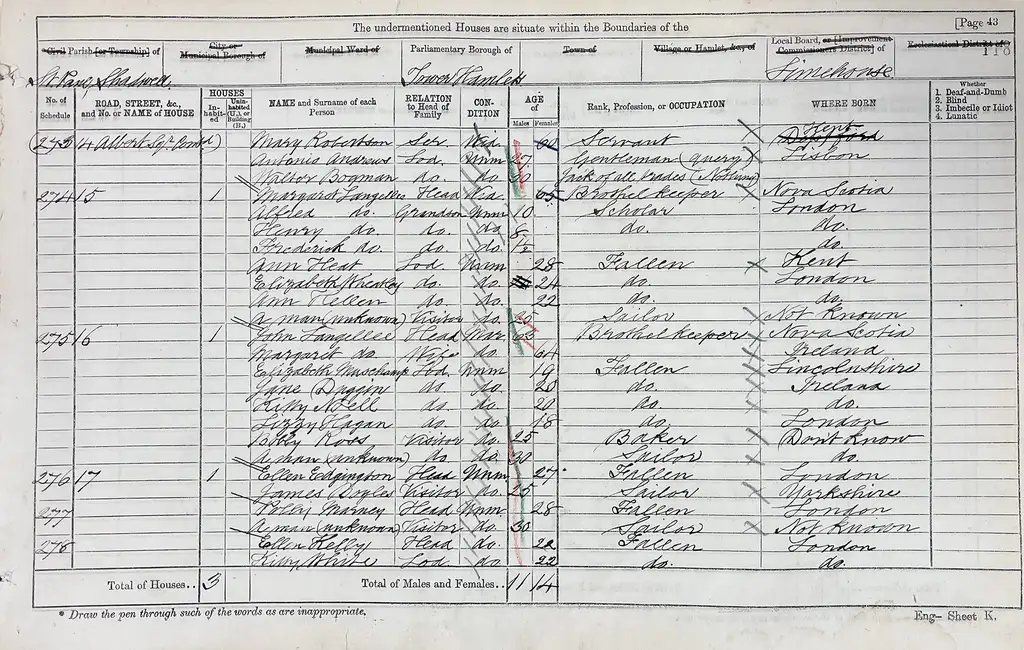 The undermentioned Houses are situate within the Boundaries of the
[Page 43
Civil Parish [or Township] of
City or Municipal Borough of
Municipal Ward of
Parliamentary Borough of
Town of
Village or Hamlet, &c., of
Local Board, or [Improvement Commissioners District] of
Ecclesiastical District of
118
St. Paul, Shadwell
Tower Hamlets
Limehouse
No. of Schedule
ROAD, STREET, &c., and No. or NAME of HOUSE
HOUSES
Inhabited
Uninhabited (U.), or Building (B.)
NAME and Surname of each Person
RELATION to Head of Family
CONDITION
AGE of
Males
Females
Rank, Profession, or OCCUPATION
WHERE BORN
Whether
1. Deaf-and-Dumb
2. Blind
3. Imbecile or Idiot
4. Lunatic
(273 14 Albert Sqr. Contd) Mary Robertson Ser. Wid. 60 Servant Kent Deptford
Antonio Andrews Lod. Unm 27 Gentleman (query) Lisbon
Walter Bogman do. do. Jack of all trades (Nothing)
274 15 1 Margaret Langellee Head Wid. 65 Brothel keeper Nova Scotia
Alfred do. Grandson Unm 10 Scholar London
Henry do. do. do. 8 do. do.
Frederick do. do. do. do.
Ann Heat Lod. Unm 28 Fallen Kent
Elizabeth Wheatley do. do. 24 do. London
Ann Hellen do. do. 22 do. do.
A man (unknown) Visitor do. 25 Sailor Not Known
275 16 1 John Langellee Head Mar 63 Brothel keeper Nova Scotia
Margaret do. Wife do. 64 Ireland
Elizabeth Muschamp Lod. Unm 19 Fallen Lincolnshire
Jane Duggin do do. 20 do. Ireland
Kitty Neell do. do. 20 do. do.
Lizzy Hagan do. do. 18 do. London
Bobby Ross Visitor do. 25 Baker Don't Know
A man (unknown) do. do. 30 Sailor do.
276 17 1 Ellen Edgington Head Unm 27 Fallen London
James Doyles Visitor do. 25 Sailor Yorkshire
277 Polly Marney Head Unm 28 Fallen London
A man (unknown) Visitor do. 30 Sailor Not Known
278 Ellen Kelby Head do. 22 Fallen London
Kitty White Lod do. 22 do. do.
Total of Houses.. 3
Total of Males and Females.. 11 14
* Draw the pen through such of the words as are inappropriate.
Eng- Sheet K.